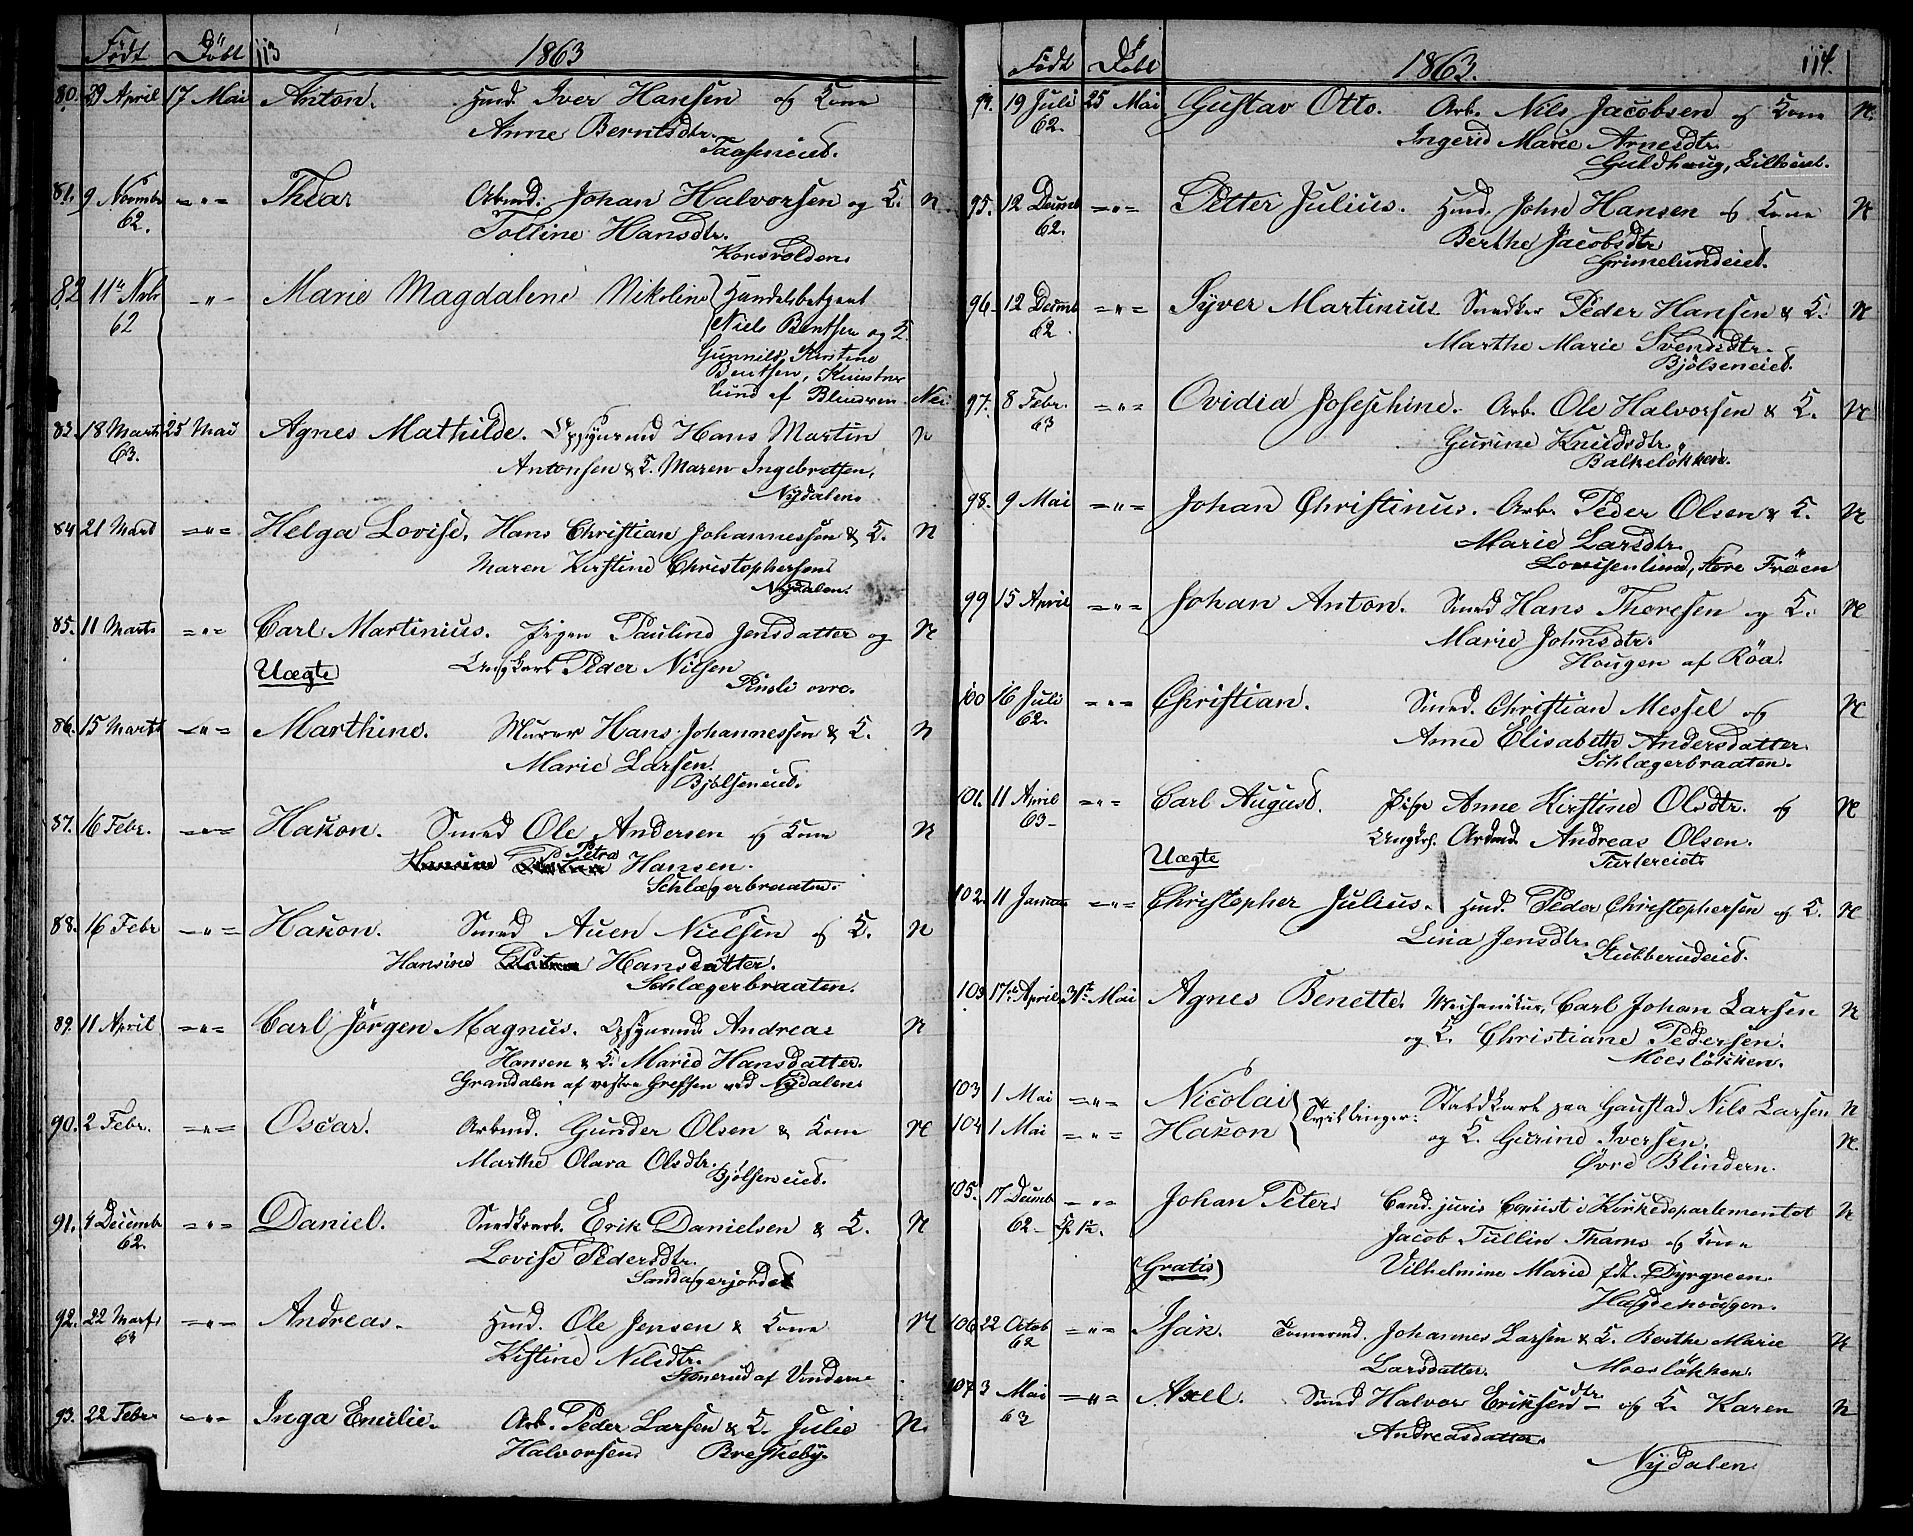 Födt Döbt 113 1863
80. 29 April 17 Mai Anton. Husmd. Iver Hansen og Kone
Anne Berntsdtr.
Taaseneiet.
81. 9 Novembr =„= Thear Arbmd. Johan Halvorsen og K. N
62. Tolline Hansdtr.
Korsvolden.
82 11te Nvbr -„- Marie Magdalene Nikoline Handelsbetjent
62 Niels Bentsen og K.
Gunnild Kirstine
Bentsen,
Lund af Blindern Nei
83. 18 Marts 25 Mai Agnes Mathilde. Opsynsmd Hans Martin N
63. Antonsen & K. Maren Ingebretsen,
Nydalen.
84 21 Marts =„= Helga Lovise. Hans Christian Johannessen & K. N
Maren Kirstine Christophersen
Nydalen.
85. 11 Marts =„= Carl Martinius. Pigen Pauline Jensdatter og N
Uægte Ungkarl Peder Nilsen
Pinsli övre.
86. 15 Marts =„= Marthine. Murer Hans Johannessen & K. N
Marie Larsen.
Bjölseneiet.
87. 16 Febr. =„= Hakon. Smed Ole Andersen og Kone N
Petra Hansen.
Schlagerbraaten.
88. 16 Febr -„= Hakon. Smed Auen Nielsen og K. N
Hansine Hansdatter.
Schlægerbraaten.
89. 11 April =„= Carl Jörgen Magnus. Opsynsmd. Andreas N
Hansen & K. Marie Hansdatter.
Grandalen af vestre Grefsen ved Nydalen
90. 2 Febr. =„= Oscar. Arbmd. Gunder Olsen & Kone N
Marthe Olava Olsdtr.
Bjölseneiet.
91. 4 Decembr =„= Daniel. Snedkerarb. Erik Danielsen & K. N
62. Lovise Pedersdtr.
Sandagerjordet
92. 22 Marts =„= Andreas. Husmd. Ole Jensen & Kone N
63 Kistine Nilsdtr.
Stenerud af Vinderne
93. 22 Febr. =„= Inga Emilie. Arb. Peder Larsen & K. Julie N.
Halvorsen. Breskeby.
Födt Döbt 1863. 114.
94. 19 Juli 25 Mai Gustav Otto. Arb. Nils Jacobsen og Kone N.
62. Ingerid Marie Arnesdtr.
Guldhaug, Lilleiet.
95. 12 Decemb =„= Petter Julius. Husmd. John Hansen og Kone N
62. Berthe Jacobsdtr
Grimelundeiet.
96. 12 Decemb =„= Syver Martinius Snedker Peder Hansen & K. N
62. Marthe Marie Svendsdtr.
Bjölseneiet.
97. 8 Febr. =„= Ovidia Josephine. Arb. Ole Halvorsen & K. N
63 Gurine Knudsdtr.
Balkelökken.
98. 9 Mai =„= Johan Christinus. Arb. Peder Olsen & K. N
Marie Larsdtr.
Lovisenlund, store Fröen
99 15 April =„= Johan Anton. Smed Hans Thoresen og K. N
Marie Johnsdtr.
Hougen af Röa.
100 16 Juli =„= Christian. Smed. Christian Messel og N
62. Anne Elisabeth Andersdatter
Schlægerbraaten.
101. 11 April =„= Carl August. Pige Anne Kirstine Olsdtr. og N
63- Ungkrl. Arbmd. Andreas Olsen.
Uægte Turtereiet
102. 11 Januar =„= Christopher Julius. Husmd. Peder Christophersen og K. N
Lina Jensdtr.
Stubberudeiet.
103 17de April 31te Mai Agnes Benette. Mechanikus, Carl Johan Larsen N
og K. Christiane Pedersen.
Moeslökken.
103 1 Mai =„= Nicolai Tvillinger: Staldkarl paa Gaustad Nils Larsen N
104 1 Mai =„= Hakon og K. Gurine Iversen. N.
Övre Blindern.
105. 17 Decemb -„- Johan Peter. Cand. juris Copiist i Kirkedepartementet N
62- Jacob Tullin Thams og Kone
(Gratis) Vilhelmine Marie fdt. Dyrgreen.
Hagdehougen.
106 22 Octob =„= Isak. Tömmermd. Johannes Larsen & K. Berthe Marie N
62 Larsdatter. Moeslökken.
107 3 Mai =„= Axel. Smed Halvor Eriksen og K. Karen N
63 Andreasdatter.
Nydalen